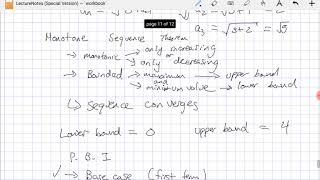 LectureNotes (Special Version) — workbook
a₃ = √(3+2) = √5
page 11 of 12
Monotone Sequence Theorem
→ monotonic → only increasing
or
→ only decreasing
→ Bounded → maximum → upper bound
and
minimum value → lower bound
↳ sequence converges
Lower bound = 0 upper bound = 4
P. B. I
✓→ Base case (first term)